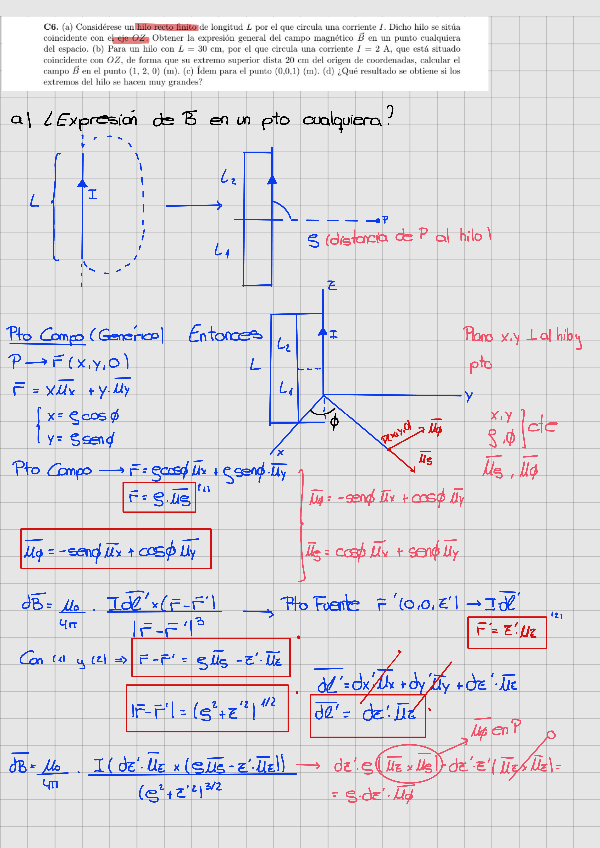 C6. (a) Considérese un hilo recto finito de longitud L por el que circula una corriente I. Dicho hilo se sitúa
coincidente con el eje OZ. Obtener la expresión general del campo magnético B⃗ en un punto cualquiera
del espacio. (b) Para un hilo con L = 30 cm, por el que circula una corriente I = 2 A, que está situado
coincidente con OZ, de forma que su extremo superior dista 20 cm del origen de coordenadas, calcular el
campo B⃗ en el punto (1, 2, 0) (m). (c) Ídem para el punto (0,0,1) (m). (d) ¿Qué resultado se obtiene si los
extremos del hilo se hacen muy grandes?
a) ¿Expresión de B̄ en un pto cualquiera?
L
I
L₂
L₁
P
ρ (distancia de P al hilo)
Z
Pto Campo (Genérico) Entonces
L
L₂
L₁
I
Plano x,y ⊥ al hilo y
pto
P → r̄ (x, y, 0)
r̄ = x ūx + y · ūy
{ x = ρ cosφ
y = ρ senφ
φ
x
y
P(x,y,0)
ūφ
ūρ
x, y
ρ, φ ] cte
ūρ, ūφ
Pto Campo → r̄ = ρ cosφ ūx + ρ senφ · ūy
r̄ = ρ · ūρ (1)
ūφ = -senφ ūx + cosφ ūy
ūρ = cosφ ūx + senφ ūy
ūφ = -senφ ūx + cosφ ūy
dB̄ = μ₀/4π · I dl̄' × (r̄ - r̄') / |r̄ - r̄'|³ → Pto Fuente r̄' (0,0,z') → I dl̄'
r̄' = z' ūz (2)
Con (1) y (2) ⇒ r̄ - r̄' = ρ ūρ - z' · ūz
dl̄' = dx' ūx + dy' ūy + dz' · ūz
|r̄ - r̄'| = (ρ² + z'²)^1/2
dl̄' = dz' · ūz
ūφ en P
dB̄ = μ₀/4π · I (dz' · ūz × (ρ ūρ - z' · ūz)) / (ρ² + z'²)^3/2 → dz' · ρ (ūz × ūρ) - dz' · z' (ūz × ūz) = 0
= ρ · dz' · ūφ